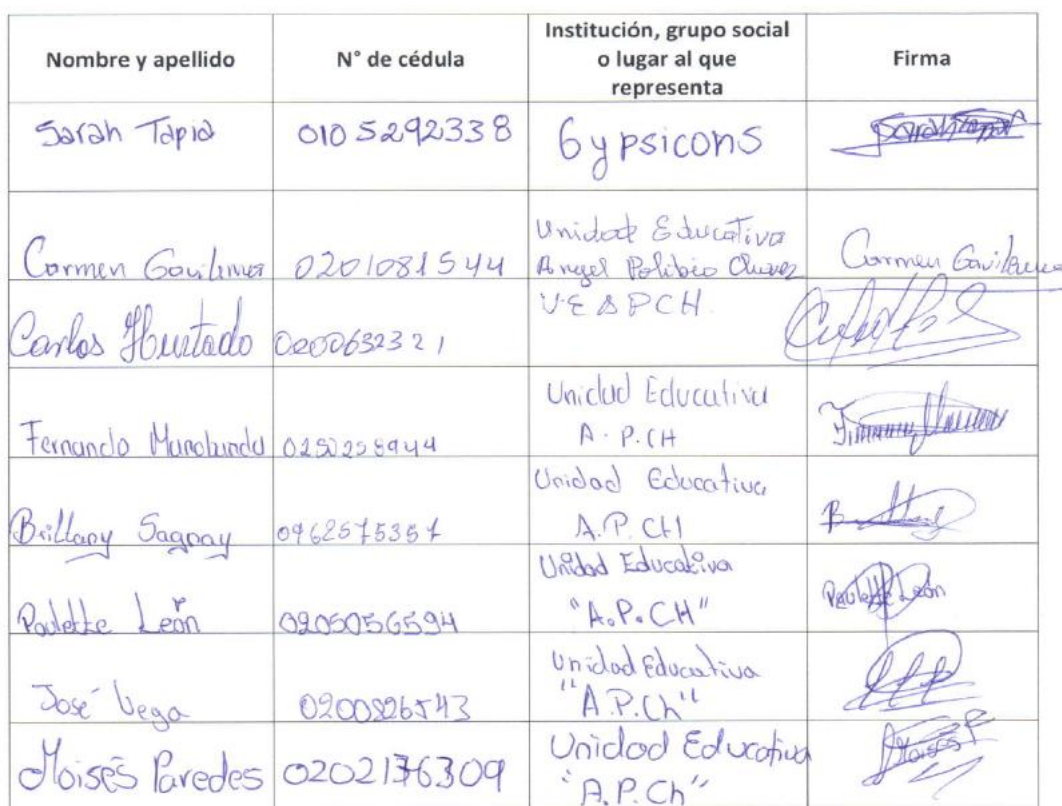 Nombre y apellido
N° de cédula
Institución, grupo social
o lugar al que
representa
Firma
Sarah Tapia
0105292338
Gypsicons
Carmen Gavilanes
0201081544
Unidad Educativa
Angel Polibio Chavez
Carmen Gavilanes
Carlos Hurtado
0200632321
U.E A P CH.
Fernando Manobanda
0250258944
Unidad Educativa
A. P. CH
Brillany Sagnay
0962575357
Unidad Educativa
A. P. CH
Paulette León
0205056594
Unidad Educativa
"A.P.CH"
Paulette León
José Vega
0200826543
Unidad Educativa
"A.P.Ch"
Moisés Paredes
0202136309
Unidad Educativa
"A.P.Ch"